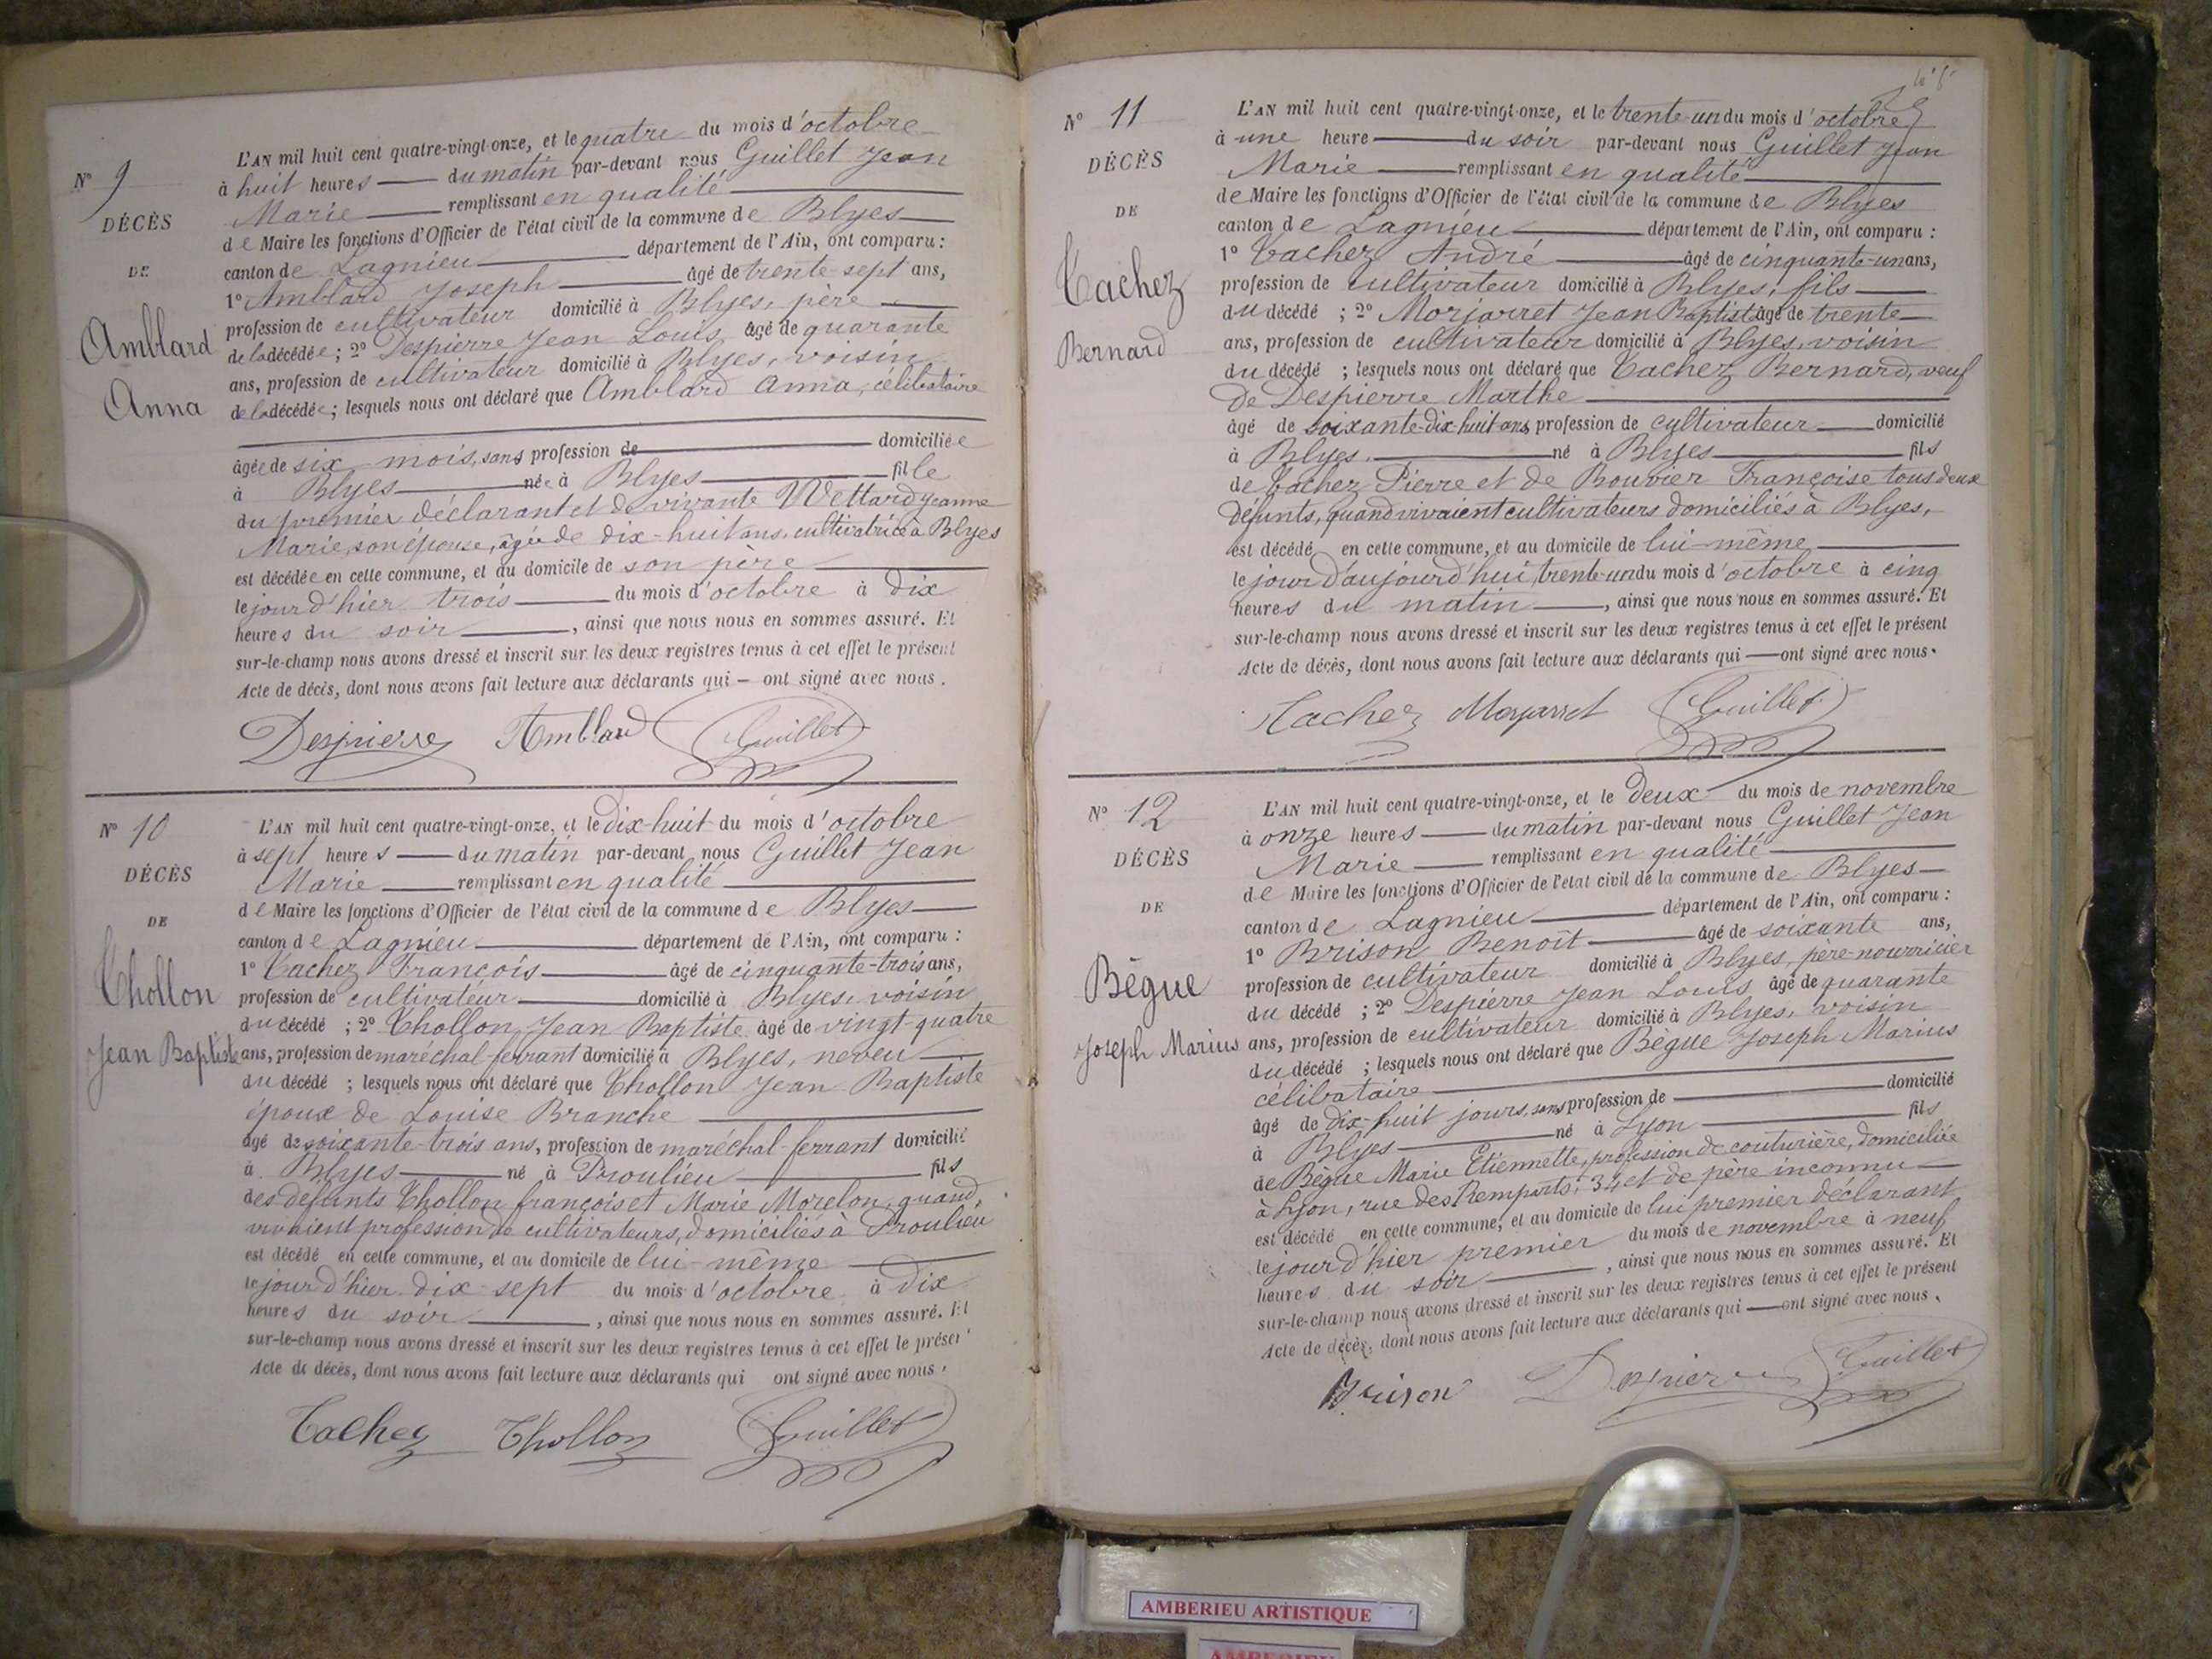 N° 9
DÉCÈS
DE
Amblard
Anna
L'AN mil huit cent quatre-vingt-onze, et le quatre du mois d'octobre
à huit heures du matin par-devant nous Guillet Jean
Marie remplissant en qualité
de Maire les fonctions d'Officier de l'état civil de la commune de Blyes
canton de Lagnieu département de l'Ain, ont comparu :
1° Amblard Joseph âgé de trente-sept ans,
profession de cultivateur domicilié à Blyes, père
de la décédée ; 2° Despierre Jean Louis âgé de quarante
ans, profession de cultivateur domicilié à Blyes, voisin
de la décédée ; lesquels nous ont déclaré que Amblard Anna, célibataire
âgée de six mois, sans profession de domiciliée
à Blyes née à Blyes fille
du premier déclarant et de vivante Wettard Jeanne
Marie, son épouse, âgée de dix-huit ans, cultivatrice à Blyes
est décédée en cette commune, et au domicile de son père
le jour d'hier trois du mois d'octobre à dix
heures du soir, ainsi que nous nous en sommes assuré. Et
sur-le-champ nous avons dressé et inscrit sur les deux registres tenus à cet effet le présent
Acte de décès, dont nous avons fait lecture aux déclarants qui – ont signé avec nous.
Despierre Amblard Guillet
N° 10
DÉCÈS
DE
Chollon
Jean Baptiste
L'AN mil huit cent quatre-vingt-onze, et le dix-huit du mois d'octobre
à sept heures du matin par-devant nous Guillet Jean
Marie remplissant en qualité
de Maire les fonctions d'Officier de l'état civil de la commune de Blyes
canton de Lagnieu département de l'Ain, ont comparu :
1° Cachez François âgé de cinquante-trois ans,
profession de cultivateur domicilié à Blyes, voisin
du décédé ; 2° Chollon Jean Baptiste âgé de vingt-quatre
ans, profession de maréchal-ferrant domicilié à Blyes, neveu
du décédé ; lesquels nous ont déclaré que Chollon Jean Baptiste
époux de Louise Branche
âgé de soixante-trois ans, profession de maréchal-ferrant domicilié
à Blyes né à Proulieu fils
des défunts Chollon françois et Marie Morelon, quand
vivaient profession de cultivateurs, domiciliés à Proulieu
est décédé en cette commune, et au domicile de lui-même
le jour d'hier dix-sept du mois d'octobre à dix
heures du soir, ainsi que nous nous en sommes assuré. Et
sur-le-champ nous avons dressé et inscrit sur les deux registres tenus à cet effet le présen
Acte de décès, dont nous avons fait lecture aux déclarants qui ont signé avec nous.
Cachez Chollon Guillet
N° 11
DÉCÈS
DE
Cachez
Bernard
L'AN mil huit cent quatre-vingt-onze, et le trente-un du mois d'octobre
à une heure du soir par-devant nous Guillet Jean
Marie remplissant en qualité
de Maire les fonctions d'Officier de l'état civil de la commune de Blyes
canton de Lagnieu département de l'Ain, ont comparu :
1° Cachez André âgé de cinquante-un ans,
profession de cultivateur domicilié à Blyes, fils
du décédé ; 2° Morjarret Jean Baptiste âgé de trente
ans, profession de cultivateur domicilié à Blyes, voisin
du décédé ; lesquels nous ont déclaré que Cachez Bernard, veuf
de Despierre Marthe
âgé de soixante-dix-huit ans profession de cultivateur domicilié
à Blyes. né à Blyes fils
de Cachez Pierre et de Bouvier Françoise tous deux
défunts, quand vivaient cultivateurs domiciliés à Blyes,
est décédé en cette commune, et au domicile de lui-même
le jour d'aujourd'hui, trente-un du mois d'octobre à cinq
heures du matin, ainsi que nous nous en sommes assuré. Et
sur-le-champ nous avons dressé et inscrit sur les deux registres tenus à cet effet le présent
Acte de décès, dont nous avons fait lecture aux déclarants qui ont signé avec nous.
Cachez Morjarret Guillet
N° 12
DÉCÈS
DE
Bègue
Joseph Marius
L'AN mil huit cent quatre-vingt-onze, et le deux du mois de novembre
à onze heures du matin par-devant nous Guillet Jean
Marie remplissant en qualité
de Maire les fonctions d'Officier de l'état civil de la commune de Blyes
canton de Lagnieu département de l'Ain, ont comparu :
1° Brison Benoît âgé de soixante ans,
profession de cultivateur domicilié à Blyes, père-nourricier
du décédé ; 2° Despierre Jean Louis âgé de quarante
ans, profession de cultivateur domicilié à Blyes, voisin
du décédé ; lesquels nous ont déclaré que Bègue Joseph Marius
célibataire
âgé de dix-huit jours, sans profession de domicilié
à Blyes né à Lyon fils
de Bègue Marie Etiennette, profession de couturière, domiciliée
à Lyon, rue des Remparts, 34 et de père inconnu
est décédé en cette commune, et au domicile de lui premier déclarant
le jour d'hier premier du mois de novembre à neuf
heures du soir, ainsi que nous nous en sommes assuré. Et
sur-le-champ nous avons dressé et inscrit sur les deux registres tenus à cet effet le présent
Acte de décès, dont nous avons fait lecture aux déclarants qui ont signé avec nous.
Brison Despierre Guillet
AMBERIEU ARTISTIQUE
AMBERIEU